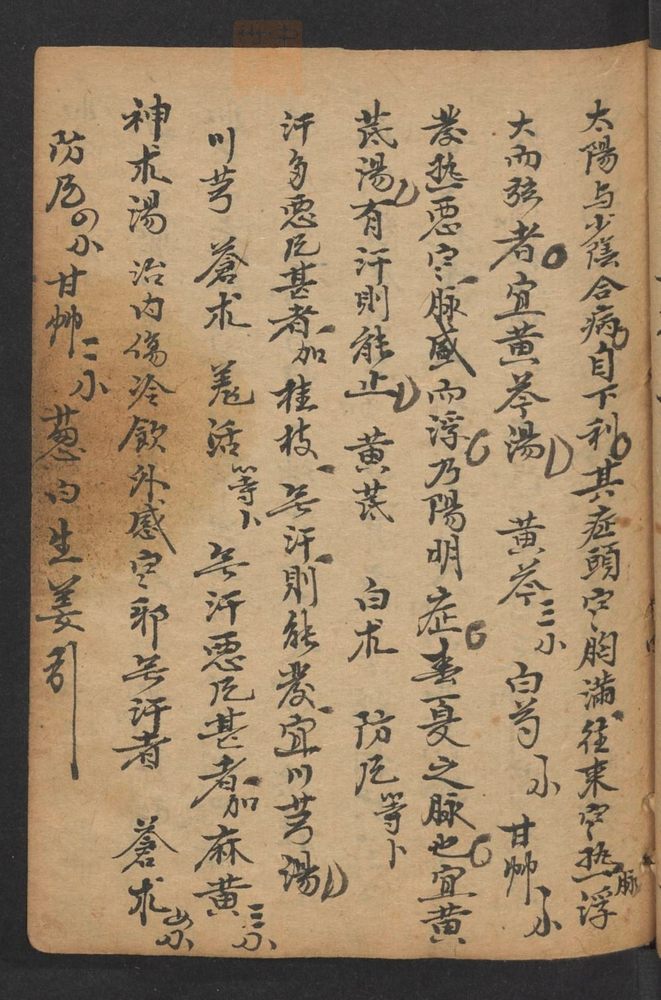 太陽与少陰合病自下利其症頭㝉胸満往来㝉热脉浮
大而弦者宜黄芩湯 黄芩三小 白芍小 甘艸小
發热悪㝉脉盛而浮乃陽明症春夏之脉也宜黄
芪湯有汗則能止 黄芪 白朮 防风等卜
汗多悪风甚者加桂枝无汗則能發宜川芎湯
川芎 蒼朮 羌活等卜 无汗悪风甚者加麻黄三小
神朮湯 治内傷冷飲外感㝉邪无汗者 蒼朮
防风 甘艸二小 葱白生姜引